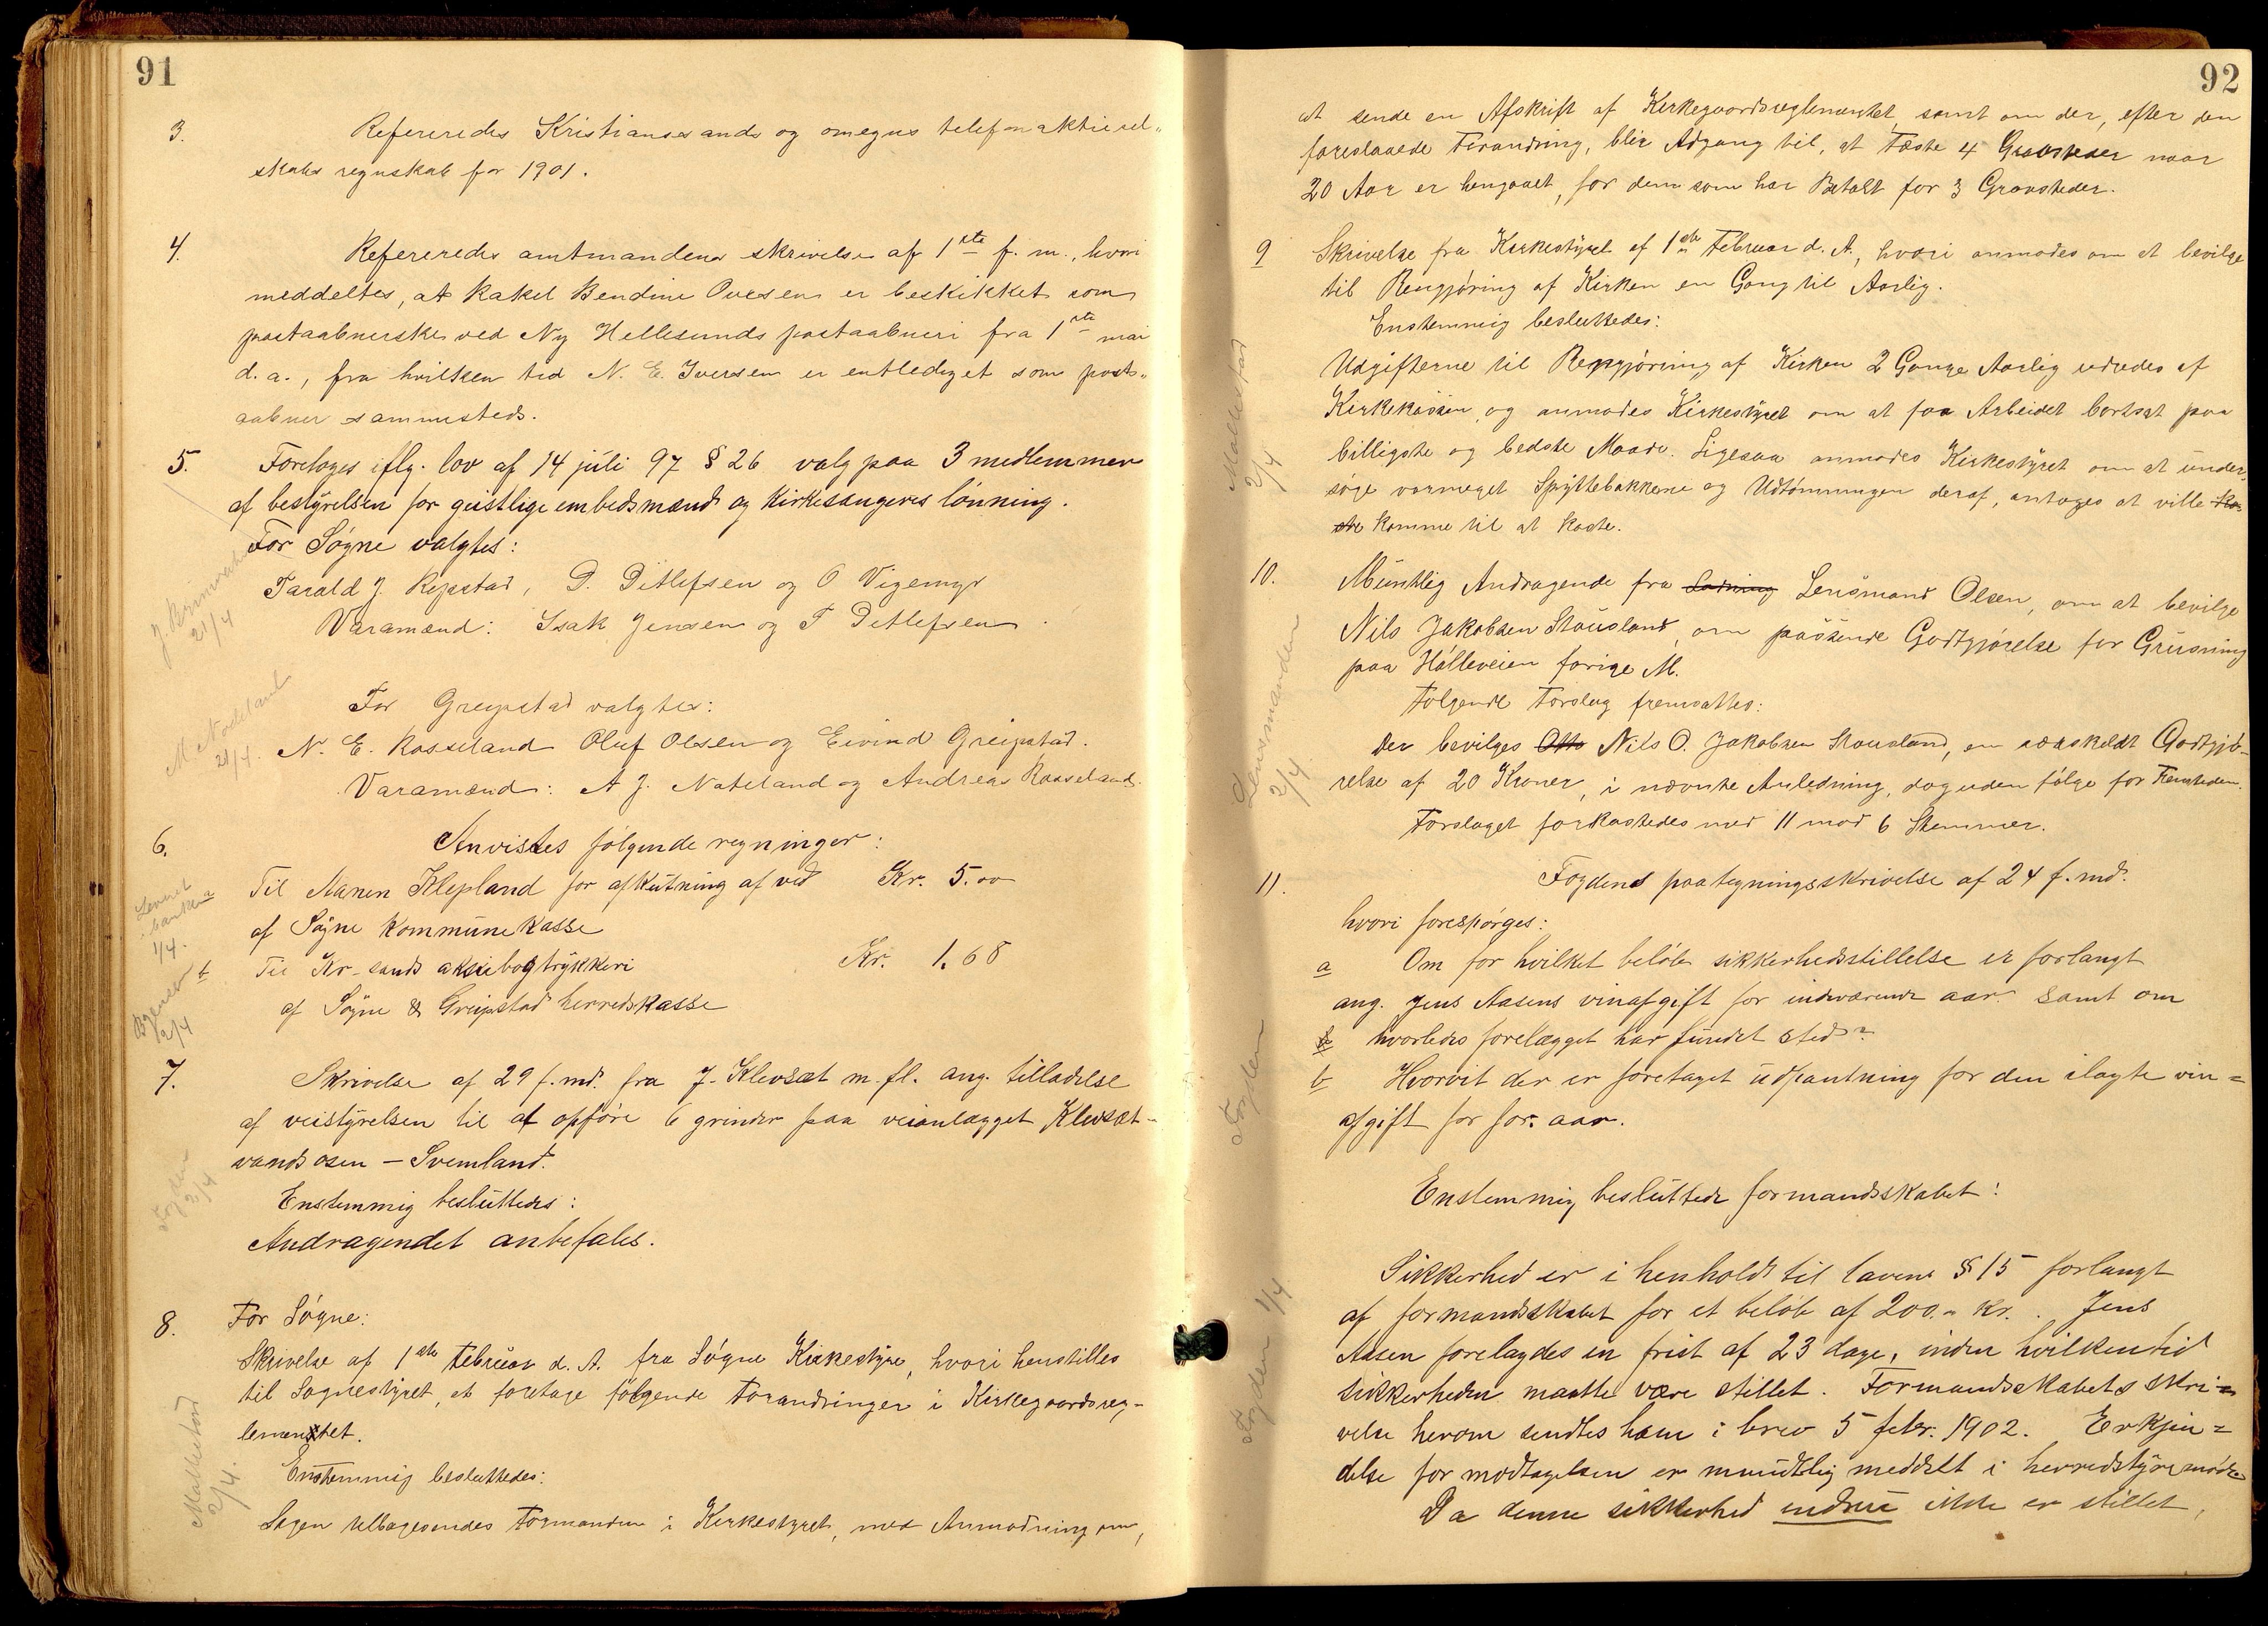 91
3. Refereredes Kristianssands og omegns telefonaktiesel„
skabs regnskab for 1901.
4. Refereredes amtmandens skrivelse af 1ste f. m., hvori
meddeltes, at Rakel Bendine Ovesen er beskikket som
postaabnerske ved Ny Hellesunds postaabneri fra 1ste mai
d. a., fra hvilken tid N. E. Iversen er entlediget som post„
aabner sammesteds.
5. Foretoges iflg. lov af 14 juli 97 § 26 valg paa 3 medlemmer
af bestyrelsen for geistlige embedsmænds og Kirkesangeres lønning.
For Søgne valgtes:
Tarald J. Repstad, D. Ditlefsen og O Vigemyr
Varamænd: Isak Jensen og T Ditlefsen
21/4
For Greipstad valgtes:
M Nodeland
21/4.
N. E. Rosseland Oluf Olsen og Eivind Greipstad.
Varamænd: A J. Nodeland og Andreas Rosseland.
6. Anvistes følgende regninger:
a Til Aanen Klepland for afkutning af ved Kr. 5.00
af Søgne Kommunekasse
1/4.
b Til Kr-sands aksiebogtrykkeri Kr. 1.68
af Søgne & Greipstad herredskasse
2/4
7. Skrivelse af 29 f. md. fra J. Klevsæt m. fl. ang. tilladelse
af veistyrelsen til at opføre 6 grinder paa veianlægget Klevsæt-
vandsosen – Svemland.
Enstemmig besluttedes:
Andragendet anbefales.
Fogden
2/4
8. For Søgne:
Skrivelse af 1ste Februar d. A. fra Søgne Kirkestyre, hvori henstilles
til Sognestyret, at foretage følgende Forandringer i Kirkegaardsreg-
lementet.
Enstemmig besluttedes:
Sagen tilbagesendes Formanden i Kirkestyret, med Anmodning om,
Mollestad
2/4.
92
at sende en Afskrift af Kirkegaardsreglementet, samt om der, efter den
foreslaaede Forandring, blir Adgang til, at Fæste 4 Gravsteder naar
20 Aar er hengaaet, for dem som har Betalt for 3 Gravsteder.
9 Skrivelse fra Kirkestyret af 1ste Februar d. A., hvori anmodes om at bevilge
til Rengjøring af Kirken en Gang til Aarlig.
Enstemmig besluttedes:
Udgifterne til Rengjøring af Kirken 2 Gange Aarlig udredes af
Kirkekassen, og anmodes Kirkestyret om at faa Arbeidet bortsat paa
billigste og bedste Maade. Ligesaa anmodes Kirkestyret om at under„
søge vormeget Spyttebakkerne og Udtømmingen deraf, antages at ville ko-
ste komme til at koste.
Mollestad
2/4
10. Mundtlig Andragende fra Ladning Lensmand Olsen, om at bevilge
Nils Jakobsen Stausland, om passende Godtgjørelse for Grusning
paa Hølleveien forige M.
Følgende Forslag fremsattes:
Der bevilges Otto Nils O. Jakobsen Stausland, en særskildt Godtgjø-
relse af 20 Kroner, i nævnte Anledning, dog uden følge for Fremtiden.
Forslaget forkastedes med 11 mod 6 Stemmer.
Lensmanden
2/4
11. Fogdens paategningsskrivelse af 24 f. md.
hvori forespørges:
a Om for hvilket beløb sikkerhedsstillelse er forlangt
ang. Jens Aasens vinafgift for indeværende aar samt om
b hvorledes forelægget har fundet sted?
b Hvorvit der er foretaget udpantning for den ilagte vin=
afgift for for. aar.
Fogden
Enstemmig besluttede formandsskabet:
Sikkerhed er i henhold til lovens § 15 forlangt
af formandsskabet for et beløb af 200.- Kr. . Jens
Aasen forelagdes en frist af 23 dage, inden hvilken tid
sikkerheden maatte være stillet. Formandsskabets skri=
velse herom sendtes ham i brev 5 febr. 1902. Erkjen=
delse for modtagelsen er mundtlig meddelt i herredstyremøde
Da denne sikkerhed endnu ikke er stillet,
Fogden 1/4